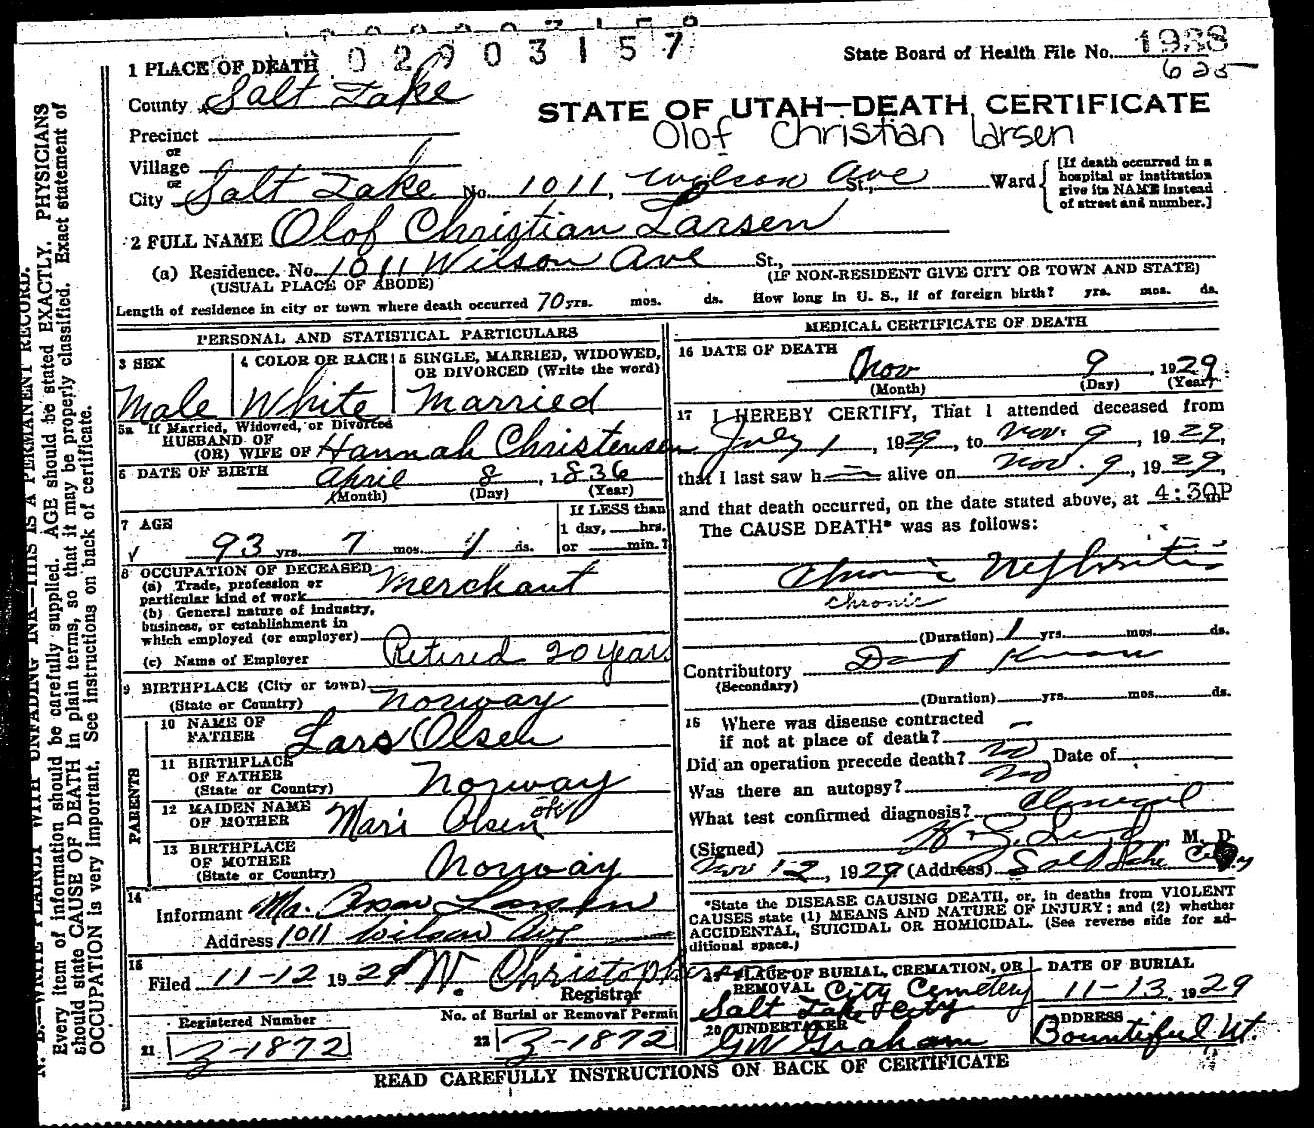 02903157
State Board of Health File No. 1988
625
1 PLACE OF DEATH
County Salt Lake
STATE OF UTAH—DEATH CERTIFICATE
Olof Christian Larsen
Precinct
or
Village
or
City Salt Lake No. 1011, Wilson Ave St., Ward
[If death occurred in a hospital or institution give its NAME instead of street and number.]
2 FULL NAME Olof Christian Larsen
(a) Residence. No. 1011 Wilson Ave St.,
(USUAL PLACE OF ABODE) (IF NON-RESIDENT GIVE CITY OR TOWN AND STATE)
Length of residence in city or town where death occurred 70 yrs. mos. ds. How long in U. S., if of foreign birth? yrs. mos. ds.
PERSONAL AND STATISTICAL PARTICULARS
3 SEX
Male
4 COLOR OR RACE
White
5 SINGLE, MARRIED, WIDOWED, OR DIVORCED (Write the word)
Married
5a If Married, Widowed, or Divorced
HUSBAND OF
(OR) WIFE OF Hannah Christensen
6 DATE OF BIRTH April 8, 1836
(Month) (Day) (Year)
7 AGE
93 yrs. 7 mos. 1 ds.
If LESS than
1 day, hrs.
or min.?
8 OCCUPATION OF DECEASED
(a) Trade, profession or
particular kind of work Merchant
(b) General nature of industry,
business, or establishment in
which employed (or employer)
(c) Name of Employer Retired 20 years
9 BIRTHPLACE (City or town)
(State or Country) Norway
PARENTS
10 NAME OF
FATHER Lars Olsen
11 BIRTHPLACE
OF FATHER
(State or Country) Norway
12 MAIDEN NAME
OF MOTHER Mari Olsen ok
13 BIRTHPLACE
OF MOTHER
(State or Country) Norway
14
Informant Mr. Larsen
Address 1011 Wilson Ave
15
Filed 11-12 1929 W. Christopherson
Registrar
Registered Number No. of Burial or Removal Permit
21 3-1872 22 3-1872
MEDICAL CERTIFICATE OF DEATH
16 DATE OF DEATH
Nov 9, 1929
(Month) (Day) (Year)
17 I HEREBY CERTIFY, That I attended deceased from
July 1, 1929, to Nov. 9, 1929,
that I last saw h alive on Nov. 9, 1929,
and that death occurred, on the date stated above, at 4:30P m
The CAUSE DEATH* was as follows:
Chronic Nephritis
Chronic
(Duration) 1 yrs. mos. ds.
Contributory Don't Know
(Secondary)
(Duration) yrs. mos. ds.
18 Where was disease contracted
if not at place of death?
Did an operation precede death? No Date of
Was there an autopsy? No
What test confirmed diagnosis? Clinical
(Signed) M. D.
Nov 12, 1929 (Address) Salt Lake City
*State the DISEASE CAUSING DEATH, or, in deaths from VIOLENT
CAUSES state (1) MEANS AND NATURE OF INJURY; and (2) whether
ACCIDENTAL, SUICIDAL OR HOMICIDAL. (See reverse side for ad-
ditional space.)
19 PLACE OF BURIAL, CREMATION, OR
REMOVAL City Cemetery
Salt Lake City
DATE OF BURIAL
11-13 1929
20 UNDERTAKER
GW Graham
ADDRESS
Bountiful Ut.
READ CAREFULLY INSTRUCTIONS ON BACK OF CERTIFICATE
N. B.—WRITE PLAINLY WITH UNFADING INK—THIS IS A PERMANENT RECORD.
Every item of information should be carefully supplied. AGE should be stated EXACTLY. PHYSICIANS
should state CAUSE OF DEATH in plain terms, so that it may be properly classified. Exact statement of
OCCUPATION is very important. See instructions on back of certificate.